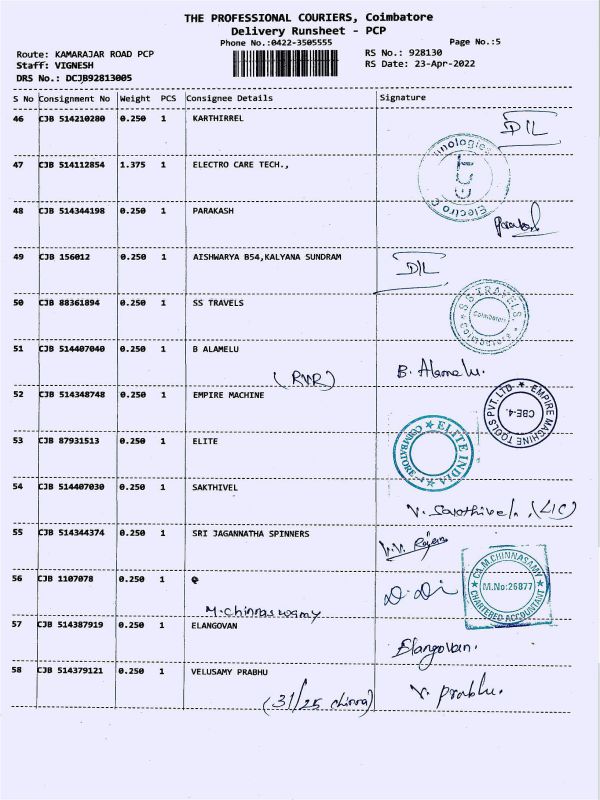 THE PROFESSIONAL COURIERS, Coimbatore
Delivery Runsheet - PCP
Phone No.:0422-3505555
Page No.:5
Route: KAMARAJAR ROAD PCP
RS No.: 928130
Staff: VIGNESH
RS Date: 23-Apr-2022
DRS No.: DCJB92813005
S No Consignment No Weight PCS Consignee Details Signature
46 CJB 514210280 0.250 1 KARTHIRREL D/L
47 CJB 514112854 1.375 1 ELECTRO CARE TECH.,
Electro C nologies
48 CJB 514344198 0.250 1 PARAKASH
49 CJB 156012 0.250 1 AISHWARYA B54,KALYANA SUNDRAM D/L
50 CJB 88361894 0.250 1 SS TRAVELS
S S TRAVELS
Coimbatore
51 CJB 514407040 0.250 1 B ALAMELU
(RNR) B. Alamelu.
52 CJB 514348748 0.250 1 EMPIRE MACHINE
EMPIRE MACHINE TOOLS PVT. LTD
CBE-4.
53 CJB 87931513 0.250 1 ELITE
ELITE INDIA
COIMBATORE
54 CJB 514407030 0.250 1 SAKTHIVEL
V. (LIC)
55 CJB 514344374 0.250 1 SRI JAGANNATHA SPINNERS
V.V.
56 CJB 1107078 0.250 1 e
M.chinnaswamy
CA.M.CHINNASAMY
M.No:26877
CHARTERED ACCOUNTANT
57 CJB 514387919 0.250 1 ELANGOVAN
Elangovan.
58 CJB 514379121 0.250 1 VELUSAMY PRABHU
(31/25 chinna) V. Prabhu.